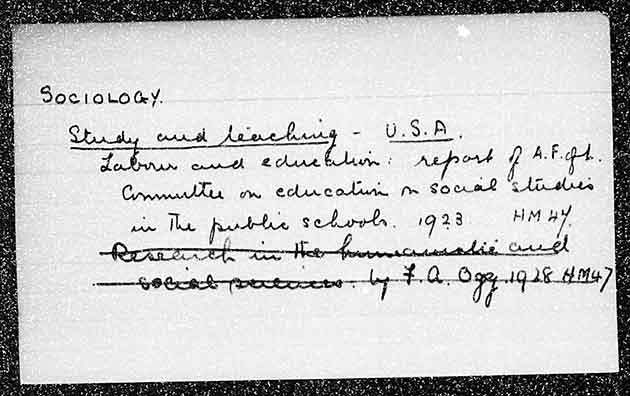 SOCIOLOGY.
Study and teaching - U.S.A.
Labour and education: report of A.F. of L.
Committee on education on social studies
in the public schools. 1923 HM47.
Research in the humanistic and
social sciences. by F.A. Ogg. 1928 HM47